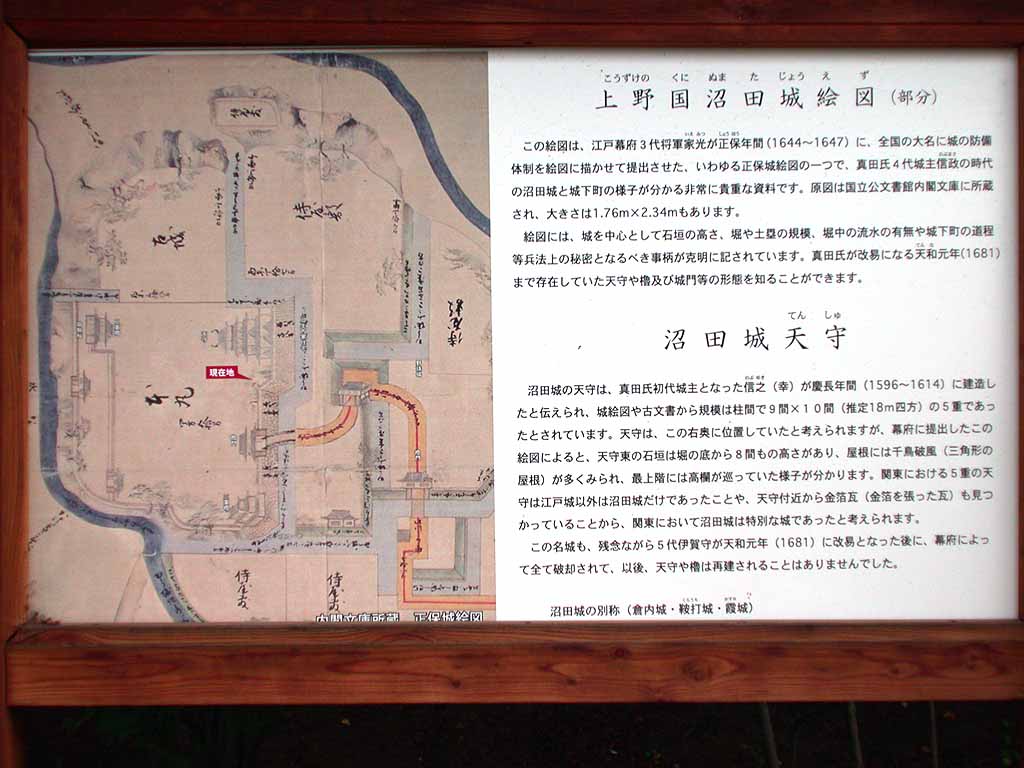 こうずけの くに ぬま た じょう え ず
上野国沼田城絵図（部分）
この絵図は、江戸幕府3代将軍家光が正保年間（1644〜1647）に、全国の大名に城の防備
体制を絵図に描かせて提出させた、いわゆる正保城絵図の一つで、真田氏4代城主信政の時代
の沼田城と城下町の様子が分かる非常に貴重な資料です。原図は国立公文書館内閣文庫に所蔵
され、大きさは1.76m×2.34mもあります。
絵図には、城を中心として石垣の高さ、堀や土塁の規模、堀中の流水の有無や城下町の道程
等兵法上の秘密となるべき事柄が克明に記されています。真田氏が改易になる天和元年(1681)
まで存在していた天守や櫓及び城門等の形態を知ることができます。
てん しゅ
沼田城天守
沼田城の天守は、真田氏初代城主となった信之（幸）が慶長年間（1596〜1614）に建造し
たと伝えられ、城絵図や古文書から規模は柱間で9間×10間（推定18m四方）の5重であっ
たとされています。天守は、この右奥に位置していたと考えられますが、幕府に提出したこの
絵図によると、天守東の石垣は堀の底から8間もの高さがあり、屋根には千鳥破風（三角形の
屋根）が多くみられ、最上階には高欄が巡っていた様子が分かります。関東における5重の天
守は江戸城以外は沼田城だけであったことや、天守付近から金箔瓦（金箔を張った瓦）も見つ
かっていることから、関東において沼田城は特別な城であったと考えられます。
この名城も、残念ながら5代伊賀守が天和元年（1681）に改易となった後に、幕府によっ
て全て破却されて、以後、天守や櫓は再建されることはありませんでした。
沼田城の別称（倉内城・鞍打城・霞城）
現在地
古城
本丸
侍屋敷
内閣文庫所蔵 正保城絵図